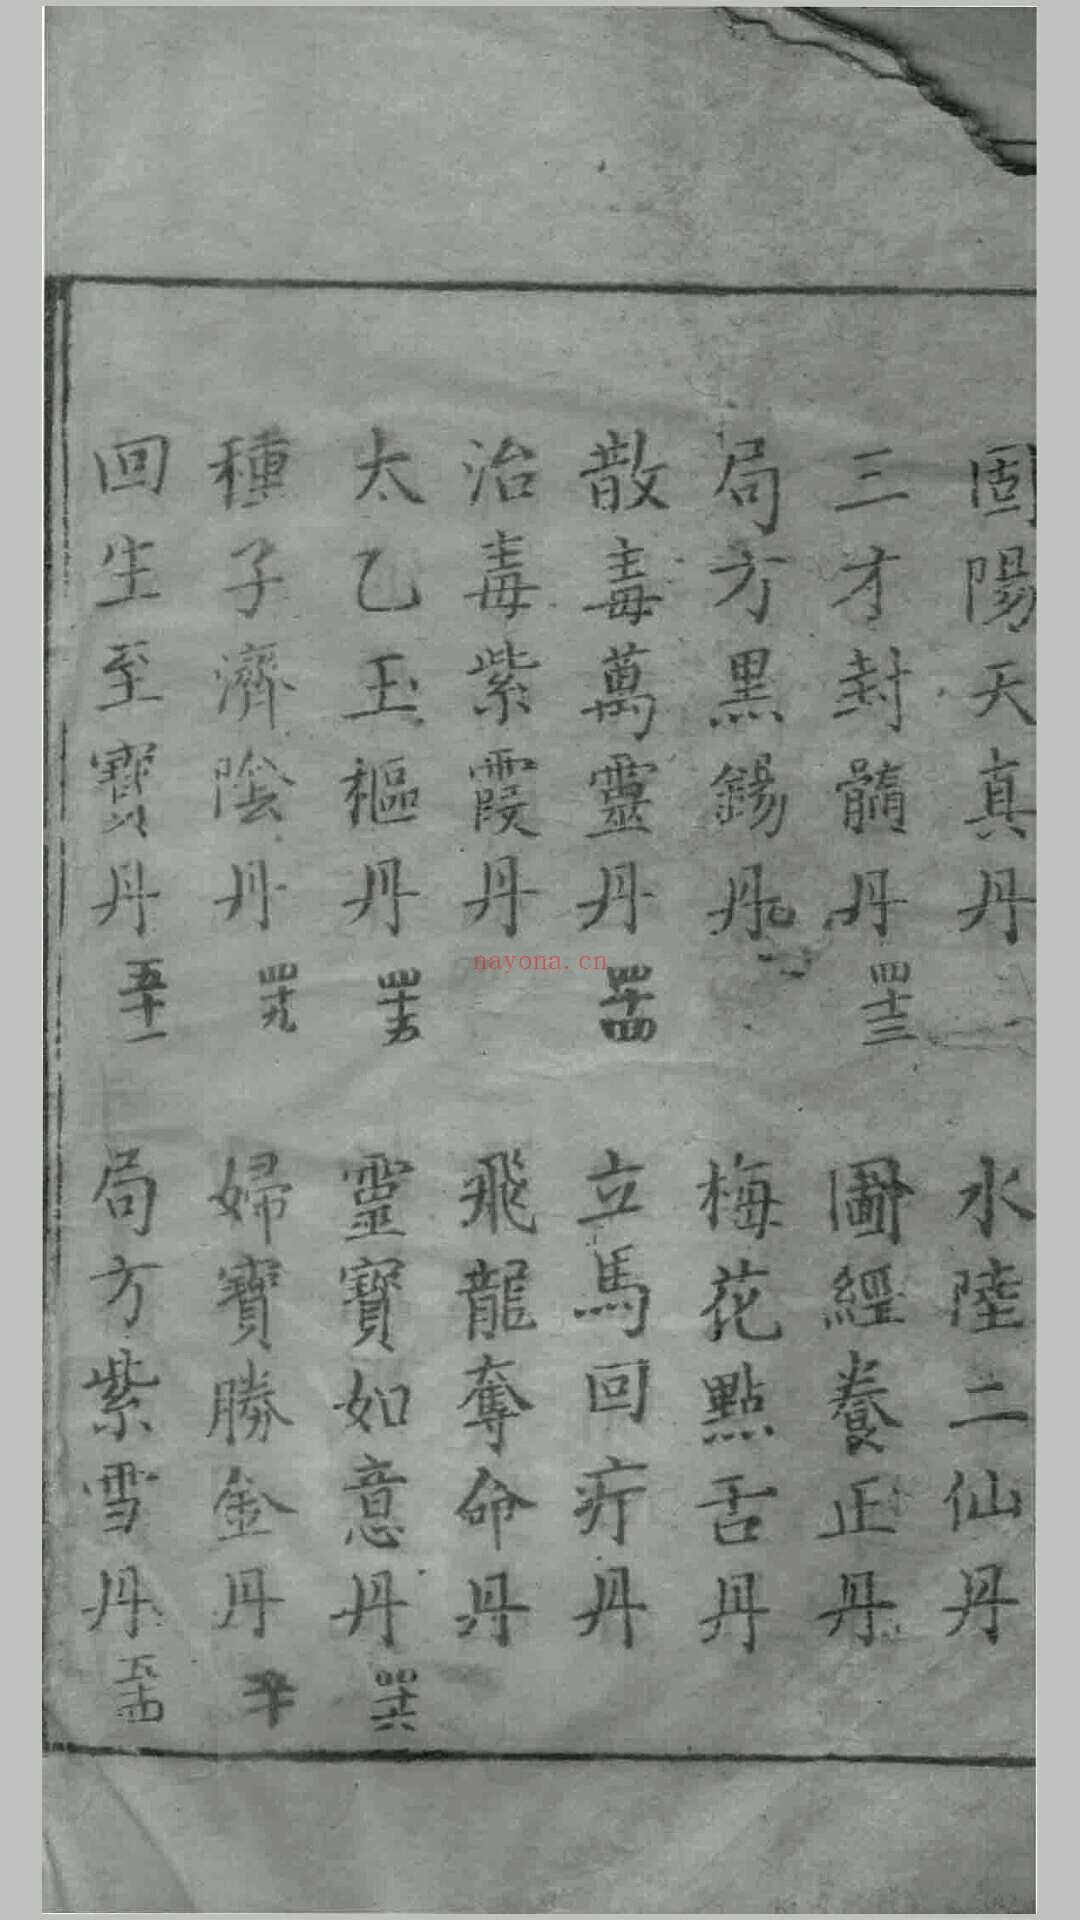 固陽天真丹
水陸二仙丹
三才封髓丹 四十三
圖經養正丹
局方黑錫丹
梅花點舌丹
散毒萬靈丹 四十四
立馬回疔丹
治毒紫霞丹
飛龍奪命丹
太乙玉樞丹 四十五
靈寶如意丹 四十六
種子濟陰丹 四十九
婦寶勝金丹 五十
回生至寶丹 五十一
局方紫雪丹 五十四
nayona.cn